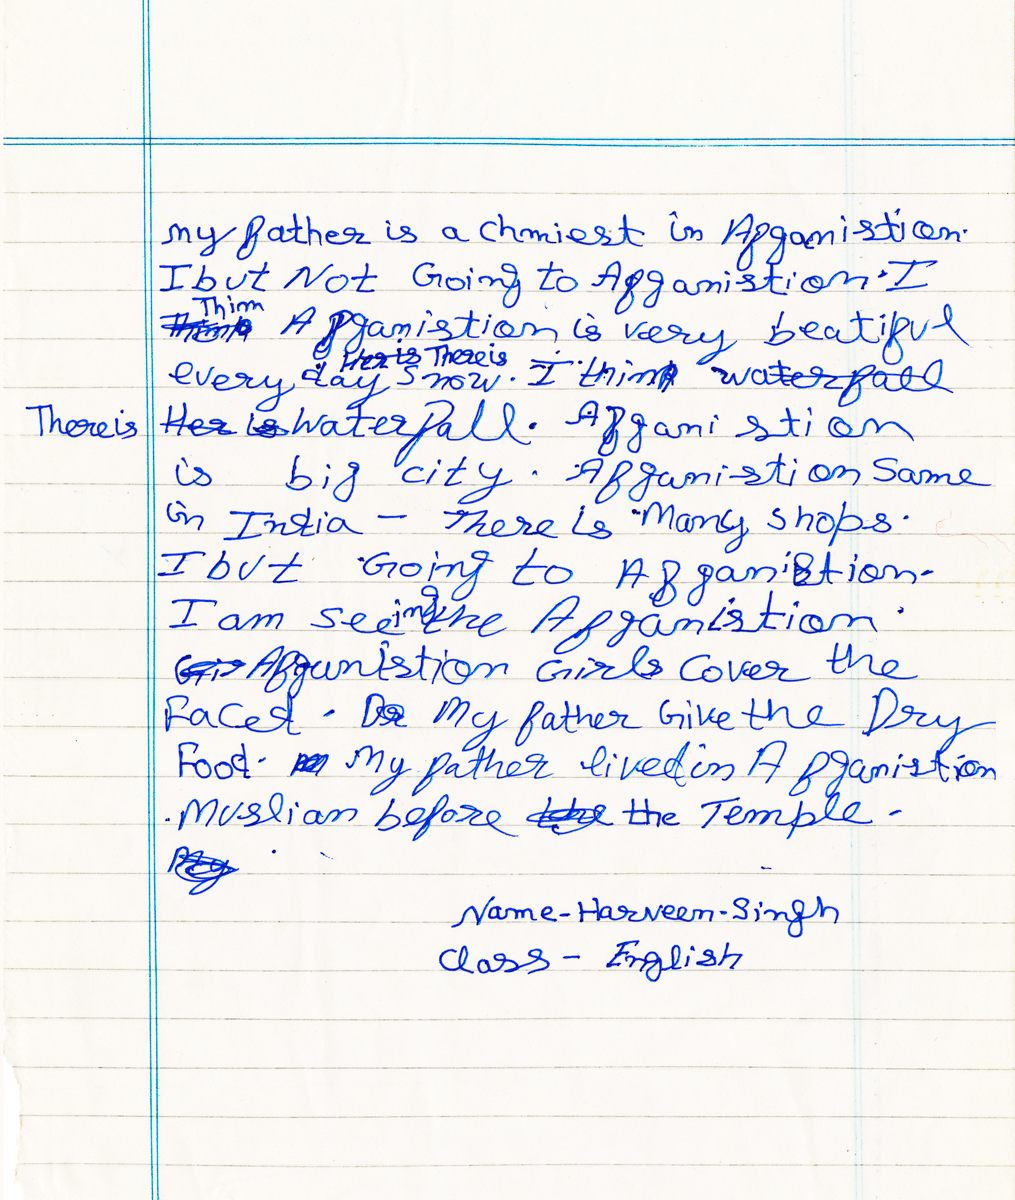 my father is a chmiest in Afganistion.
I but Not Going to Afganistion. I
Thim
Think Afganistion is very beatiful
Her is There is
every day snow. I think waterfall
There is Her is Waterfall. Afganistion
is big city. Afganistion Same
in India - There is Many shops.
I but Going to Afganistion.
I am seeing the Afganistion.
Gir Afgunistion Girls Cover the
Faced. De My father Give the Dry
Food. My father lived in Afganistion
.Muslian before the Temple.
My
Name-Harveen-Singh
Class - English